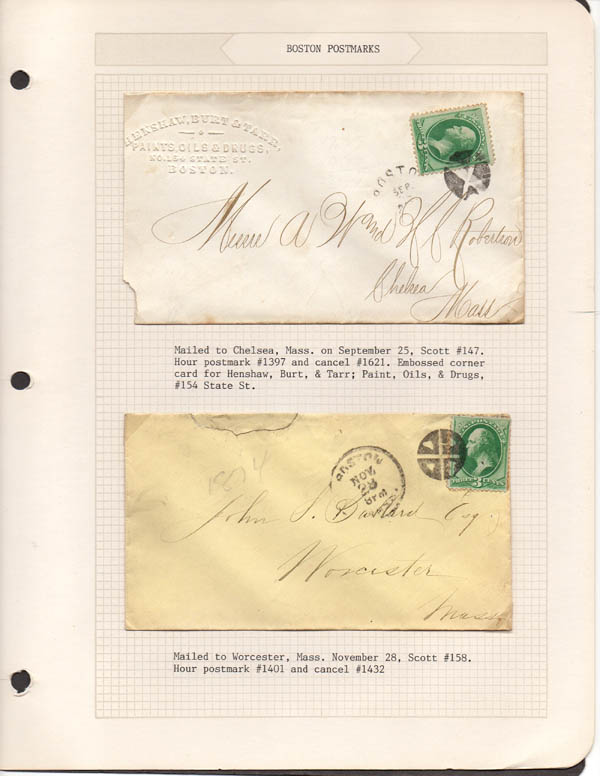 BOSTON POSTMARKS
HENSHAW, BURT & TARR,
PAINTS, OILS & DRUGS,
NO. 154 STATE ST.
BOSTON.
BOSTON
SEP.
Messrs A. Wm and H. Robertson
Chelsea
Mass
Mailed to Chelsea, Mass. on September 25, Scott #147.
Hour postmark #1397 and cancel #1621. Embossed corner
card for Henshaw, Burt, & Tarr; Paint, Oils, & Drugs,
#154 State St.
1874
BOSTON
NOV.
28
THREE 3 CENTS
John S. Esq.
Worcester
Mass
Mailed to Worcester, Mass. November 28, Scott #158.
Hour postmark #1401 and cancel #1432